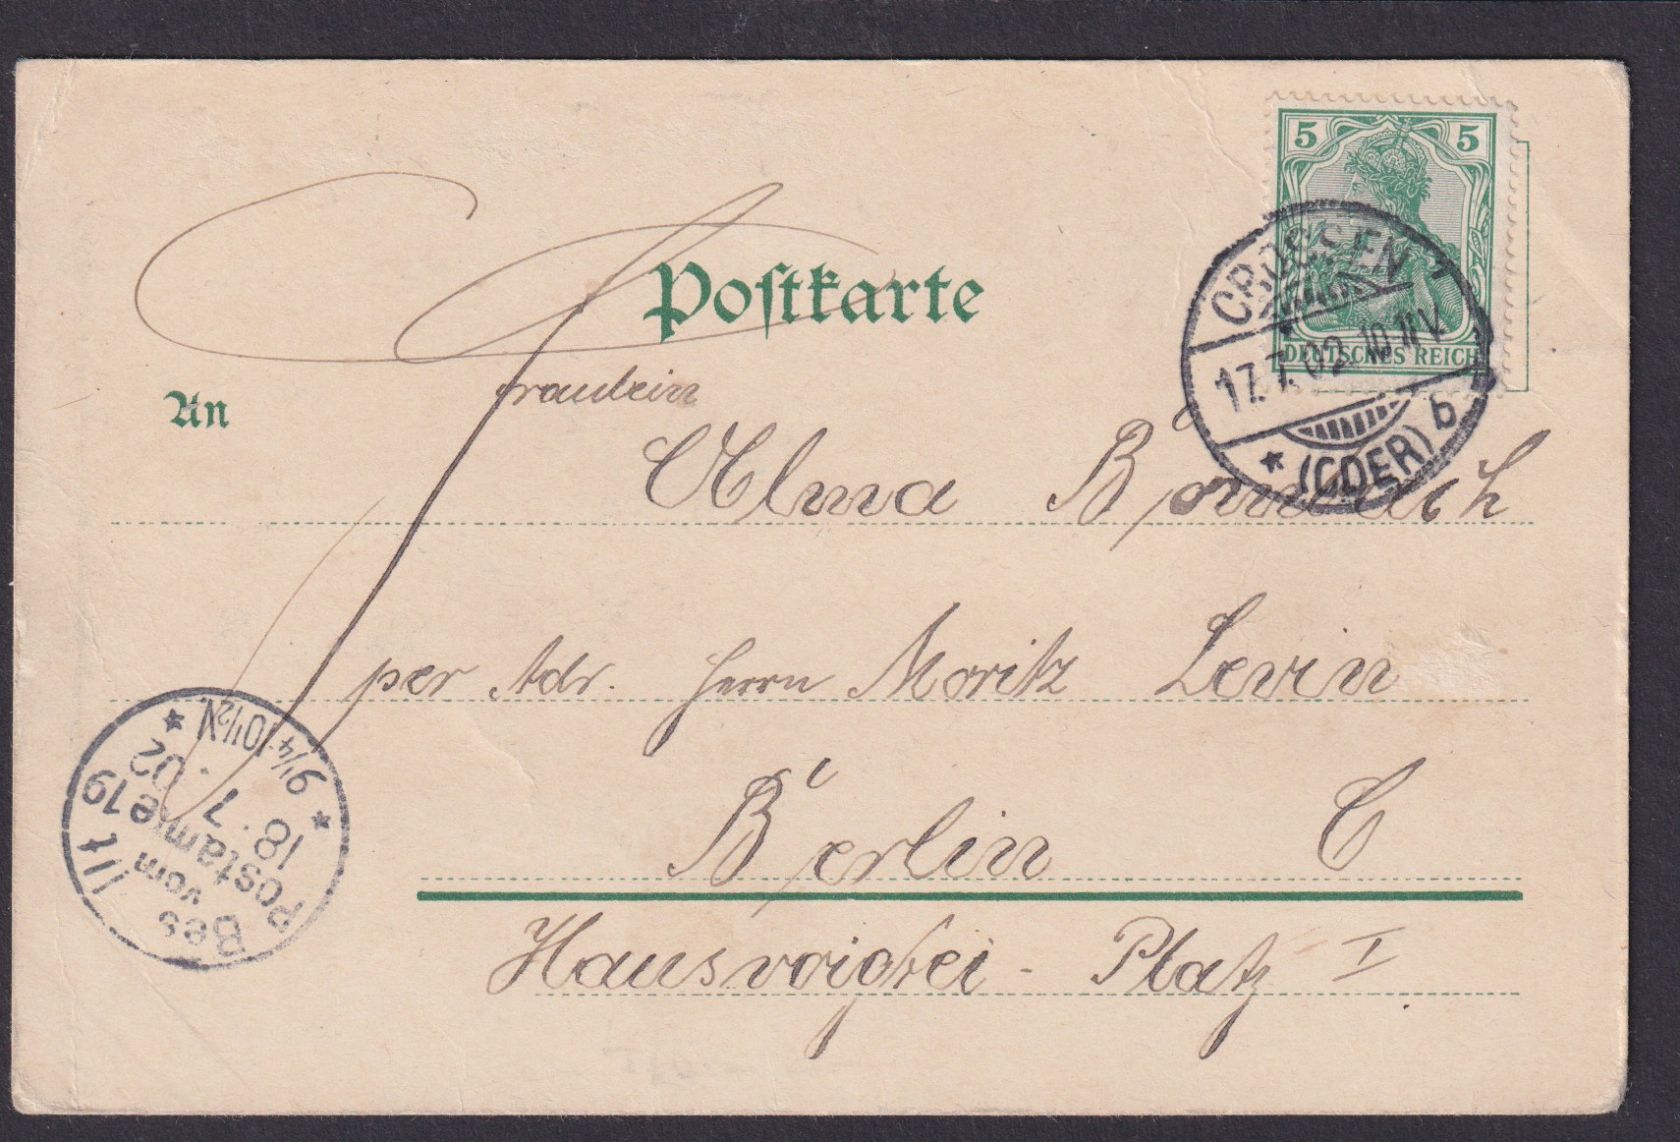 5 5
DEUTSCHES REICH
CROSSEN
17.7.02. 10-11V.
* (ODER) b
Postkarte
An
Fräulein
Alma
per Adr. Herrn Moritz Levin
Berlin C
Hausvoigtei - Platz I
Bes
vom
Postamte 19
18. 7. 02
* 9 1/4-10 1/2 V *